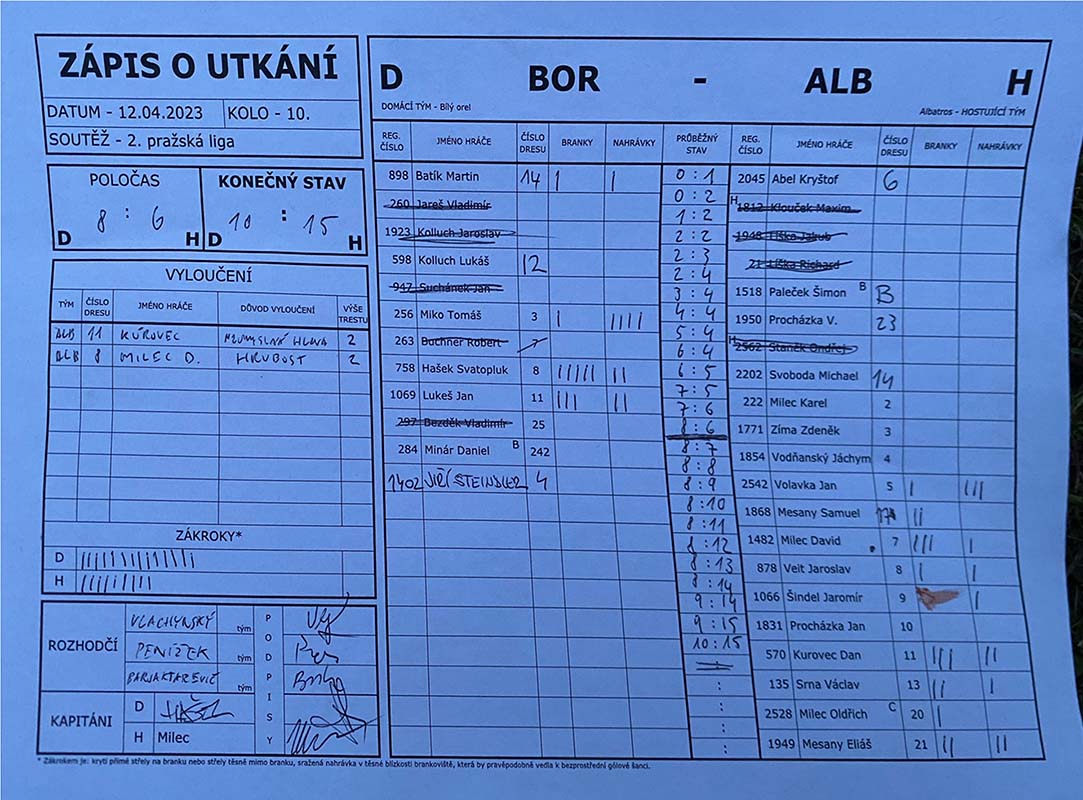 ZÁPIS O UTKÁNÍ
DATUM - 12.04.2023 KOLO - 10.
SOUTĚŽ - 2. pražská liga
POLOČAS KONEČNÝ STAV
8 : 6 10 : 15
D H D H
VYLOUČENÍ
TÝM ČÍSLO DRESU JMÉNO HRÁČE DŮVOD VYLOUČENÍ VÝŠE TRESTU
ALB 11 KUROVEC 2
ALB 8 MILEC D. HRUBOST 2
ZÁKROKY*
D
H
ROZHODČÍ
VLACHYNSKÝ tým
PENÍZEK tým
tým
PODPISY
KAPITÁNI
D
H Milec
D BOR - ALB H
DOMÁCÍ TÝM - Bílý orel Albatros - HOSTUJÍCÍ TÝM
REG. ČÍSLO JMÉNO HRÁČE ČÍSLO DRESU BRANKY NAHRÁVKY
898 Batík Martin 14 | |
260 Jareš Vladimír
1923 Kolluch Jaroslav
598 Kolluch Lukáš 12
947 Suchánek Jan
256 Miko Tomáš 3 | ||||
263 Buchner Robert
758 Hašek Svatopluk 8 ||||| ||
1069 Lukeš Jan 11 ||| ||
297 Bezděk Vladimír 25
284 Minár Daniel B 242
1402 JIŘÍ STEINDLER 4
PRŮBĚŽNÝ STAV
0 : 1
0 : 2
1 : 2
2 : 2
2 : 3
2 : 4
3 : 4
4 : 4
5 : 4
6 : 4
6 : 5
7 : 5
7 : 6
8 : 6
8 : 7
8 : 8
8 : 9
8 : 10
8 : 11
8 : 12
8 : 13
8 : 14
9 : 14
9 : 15
10 : 15
:
:
:
:
REG. ČÍSLO JMÉNO HRÁČE ČÍSLO DRESU BRANKY NAHRÁVKY
2045 Abel Kryštof 6
H 1812 Klouček Maxim
1948 Líška Jakub
21 Líška Richard
1518 Paleček Šimon B B
1950 Procházka V. 23
H 2562 Staněk Ondřej
2202 Svoboda Michael 14
222 Milec Karel 2
1771 Zíma Zdeněk 3
1854 Vodňanský Jáchym 4
2542 Volavka Jan 5 | |||
1868 Mesany Samuel ||
1482 Milec David 7 ||| |
878 Veit Jaroslav 8 | |
1066 Šindel Jaromír 9 |
1831 Procházka Jan 10
570 Kurovec Dan 11 ||| ||
135 Srna Václav 13 || |
2528 Milec Oldřich C 20 |
1949 Mesany Eliáš 21 || ||
* Zákrokem je: krytí přímé střely na branku nebo střely těsně mimo branku, sražená nahrávka v těsné blízkosti brankoviště, která by pravěpodobně vedla k bezprostřední gólové šanci.